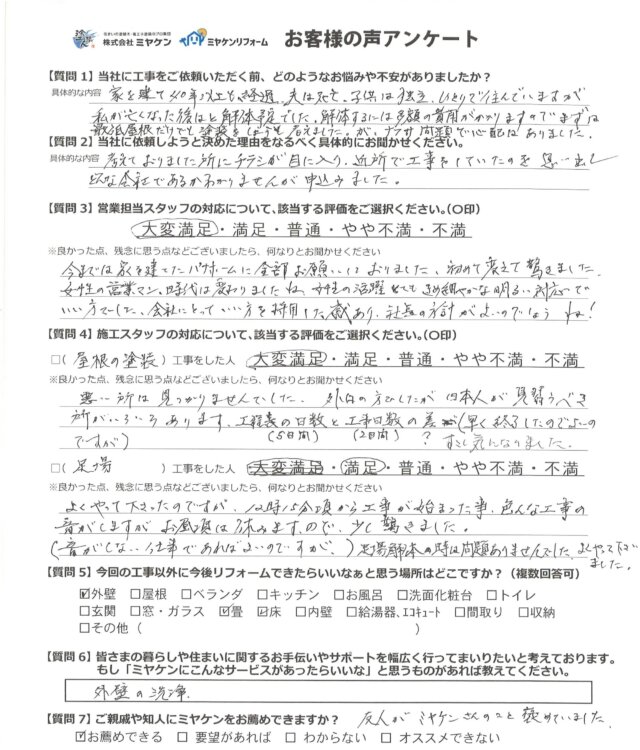 住まいの塗替え・省エネ建材のプロ集団
株式会社ミヤケン ミヤケンリフォーム お客様の声アンケート
【質問1】当社に工事をご依頼いただく前、どのようなお悩みや不安がありましたか？
具体的な内容 家を建て40年以上も経過、夫は死亡、子供は独立、ひとりで住んでいますが
私が亡くなった後はと解体予定でした。解体するには多額の費用がかかりますのでまずは
最低屋根だけでも塗装をしようと考えました。が、
【質問2】当社に依頼しようと決めた理由をなるべく具体的にお聞かせください。
具体的な内容 考えておりました所にチラシが目に入り、近所で工事をしていたのを思い出し
どんな会社であるかわかりませんが申込みました。
【質問3】営業担当スタッフの対応について、該当する評価をご選択ください。（○印）
大変満足・満足・普通・やや不満・不満
※良かった点、残念に思う点などございましたら、何なりとお聞かせください
今までは家を建てたパナホームに全部お願いしておりました、初めて変えて驚きました。
女性の営業マン、時代は変わりましたね、女性の活躍 きめ細やかな明るい対応で
いい方でした、会社にとっていい方を採用した感あり、社長の方針がよいのでしょうね！
【質問4】施工スタッフの対応について、該当する評価をご選択ください。（○印）
□（屋根の塗装）工事をした人 大変満足・満足・普通・やや不満・不満
※良かった点、残念に思う点などございましたら、何なりとお聞かせください
悪い所は見つかりませんでした。外国の方でしたが日本人が見習うべき
所がいろいろあります、工程表の日数と工事日数の差が（早く終了したのでよいの
ですが） （5日間） （2日間） ？ すこし気になりました。
□（足場）工事をした人 大変満足・満足・普通・やや不満・不満
※良かった点、残念に思う点などございましたら、何なりとお聞かせください
よくやって下さったのですが、12時15分頃から工事が始まった事、色んな工事の
音がしますがお昼頃は休みますので、少し驚きました。
（音がしない仕事であればよいのですが、）足場解体の時は問題ありませんでした、よくやって下さい
ました。
【質問5】今回の工事以外に今後リフォームできたらいいなぁと思う場所はどこですか？（複数回答可）
☑外壁 □屋根 □ベランダ □キッチン □お風呂 □洗面化粧台 □トイレ
□玄関 □窓・ガラス ☑畳 ☑床 □内壁 □給湯器、エコキュート □間取り □収納
□その他（ ）
【質問6】皆さまの暮らしや住まいに関するお手伝いやサポートを幅広く行ってまいりたいと考えております。
もし「ミヤケンにこんなサービスがあったらいいな」と思うものがあれば教えてください。
外壁の洗浄
【質問7】ご親戚や知人にミヤケンをお薦めできますか？ 友人がミヤケンさんのこと褒めていました
☑お薦めできる □要望があれば □わからない □オススメできない